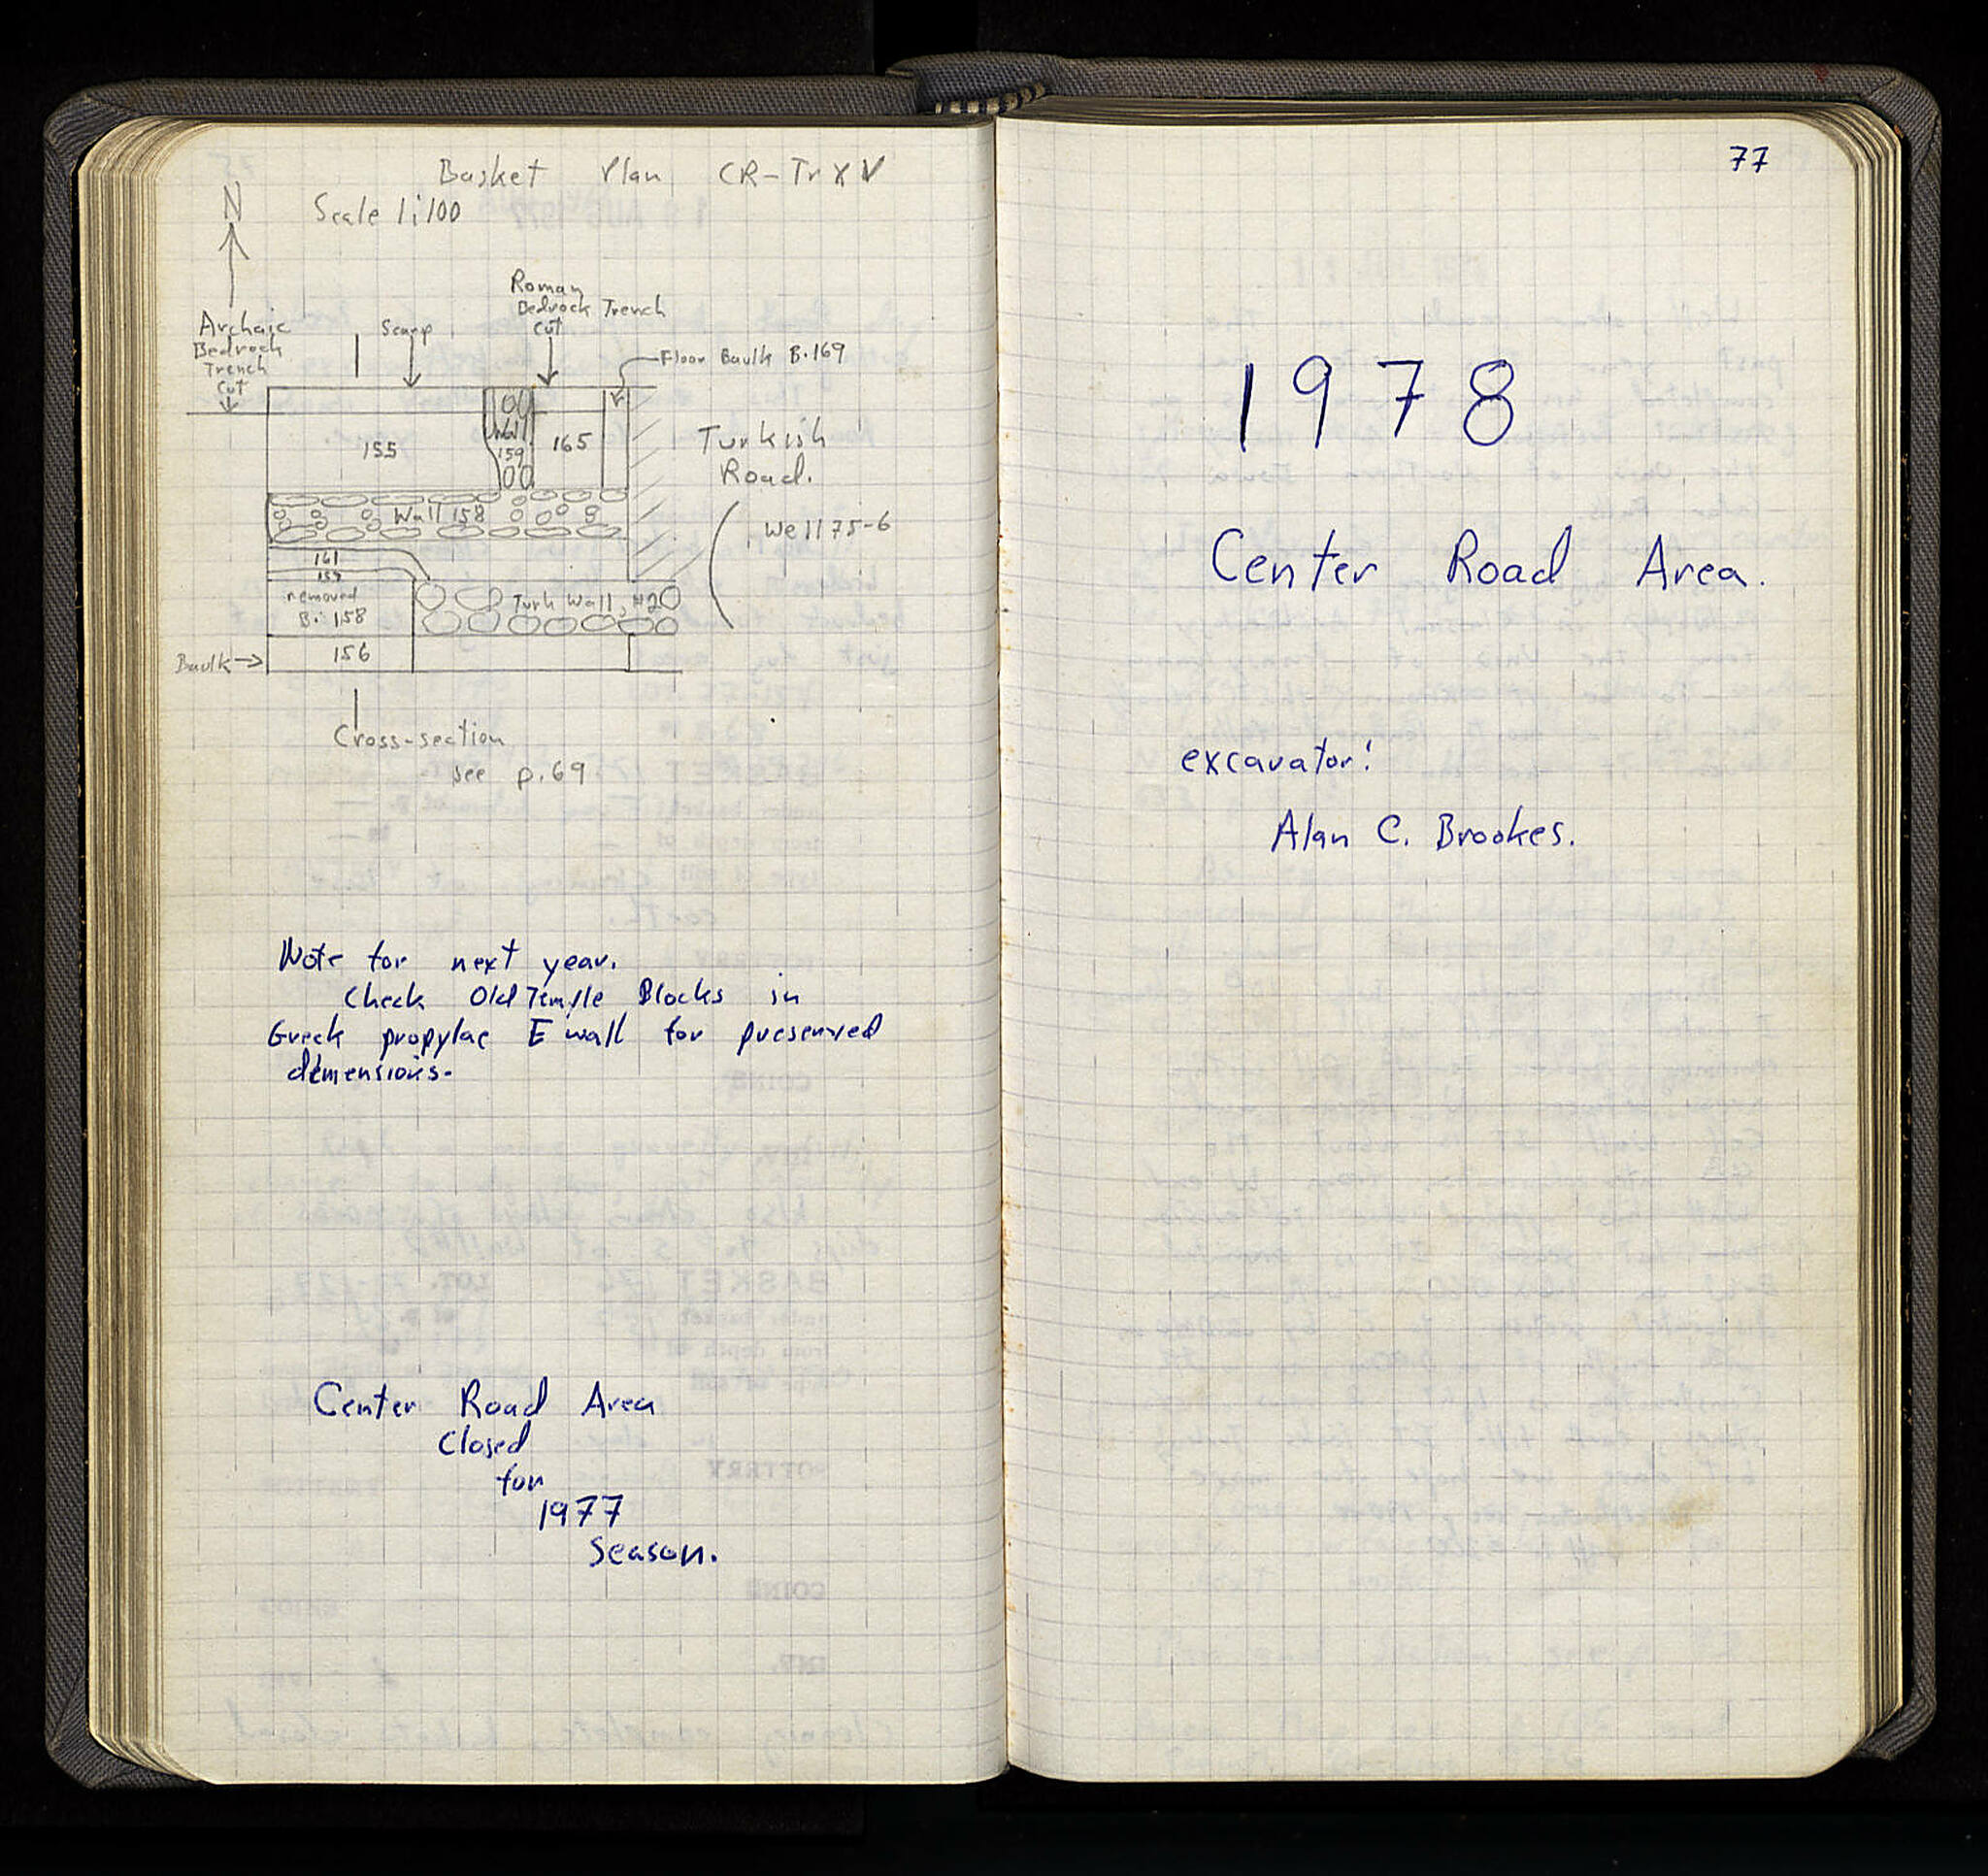 Basket Plan CR-Tr XV
N
Scale 1:100
Roman
Bedrock Trench
Cut
Archaic
Bedrock
Trench
Cut
Scarp
Floor Baulk B.169
155
Wall
159
165
Turkish
Road.
Wall 158
Well 75-6
161
159
removed
B. 158
Turk Wall #2
156
Baulk
Cross-section
see p.69
Note for next year.
Check Old Temple Blocks in
Greek propylae E wall for preserved
dimensions.
Center Road Area
Closed
for
1977
Season.
77
1978
Center Road Area.
excavator:
Alan C. Brookes.